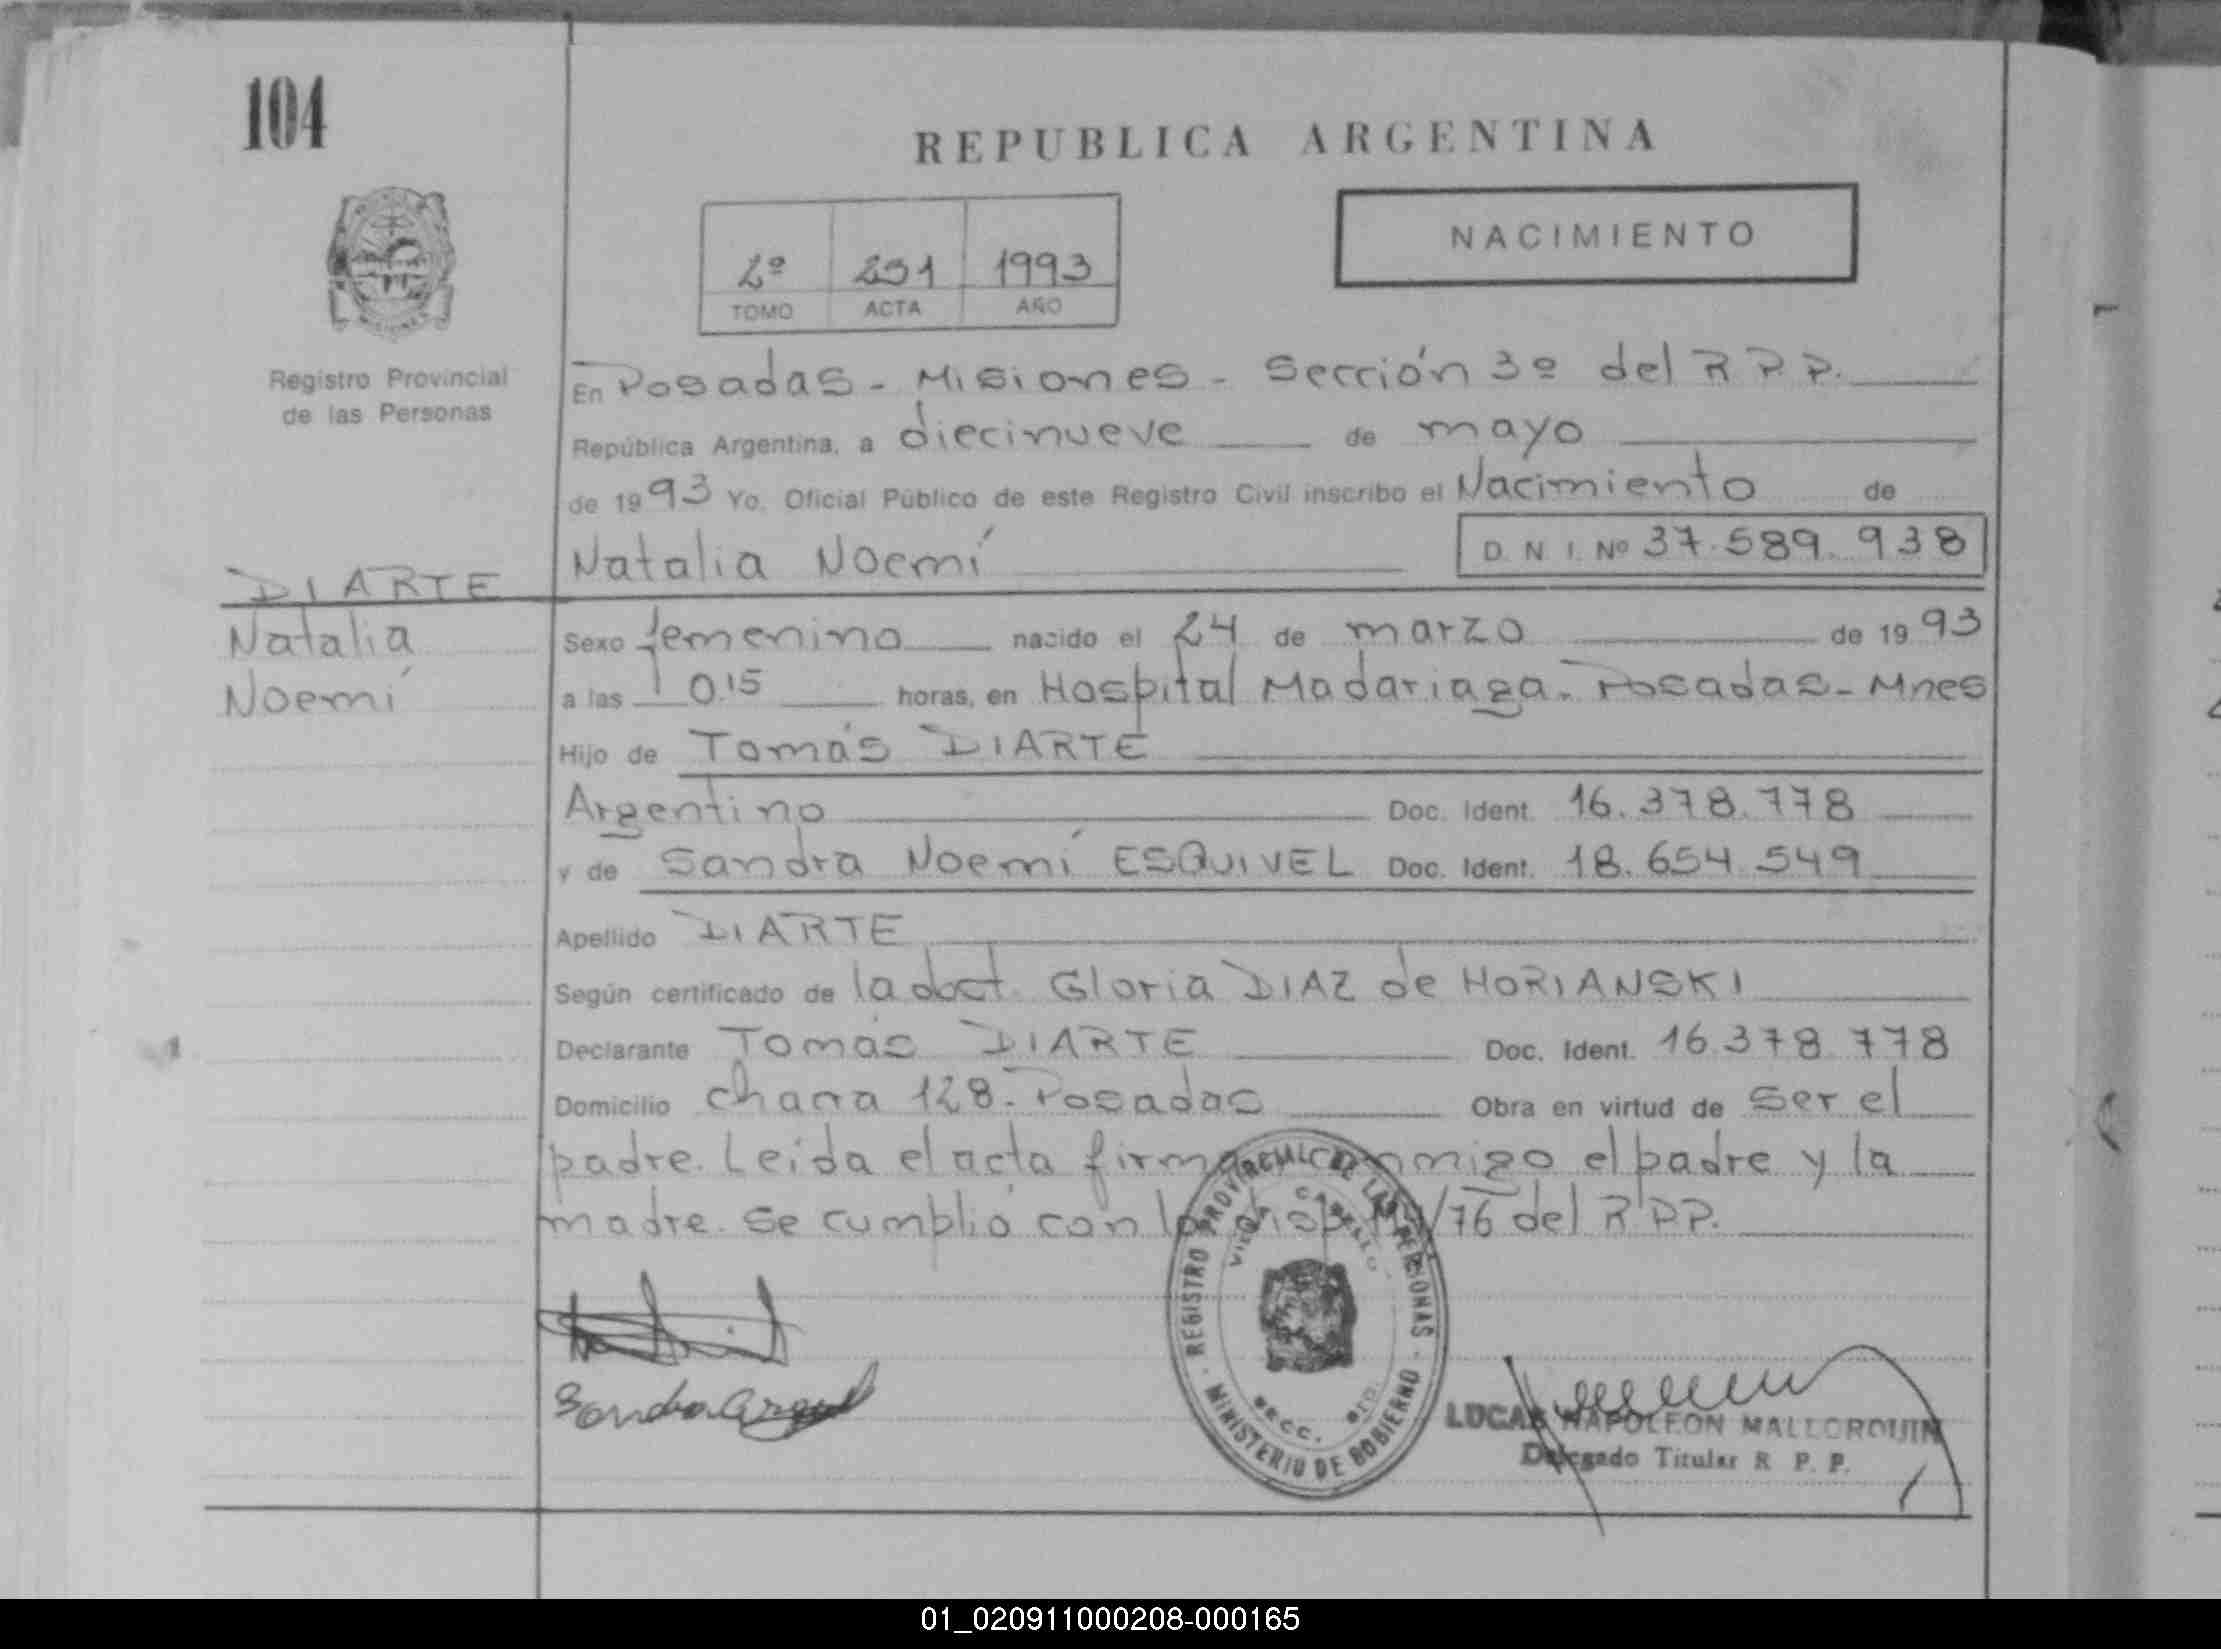 104
REPUBLICA ARGENTINA
NACIMIENTO
2º 231 1993
TOMO ACTA AÑO
Registro Provincial
de las Personas
En Posadas - Misiones - Sección 3º del R.P.P.
República Argentina, a diecinueve de mayo
de 1993 Yo, Oficial Público de este Registro Civil inscribo el Nacimiento de
Natalia Noemí D.N.I. Nº 37.589.938
DIARTE
Natalia
Noemí
Sexo femenino nacido el 24 de marzo de 1993
a las 0.15 horas, en Hospital Madariaga. Posadas - Mnes
Hijo de Tomás DIARTE
Argentino Doc. Ident. 16.378.778
y de Sandra Noemí ESQUIVEL Doc. Ident. 18.654.549
Apellido DIARTE
Según certificado de la doct. Gloria DIAZ de HORIANSKI
Declarante Tomás DIARTE Doc. Ident. 16.378.778
Domicilio chacra 128. Posadas Obra en virtud de ser el
padre. Leída el acta firman conmigo el padre y la
madre. Se cumplió con la /76 del R.P.P.
REGISTRO PROVINCIAL DE LAS PERSONAS
MINISTERIO DE GOBIERNO
LUCAS NAPOLEON MALLORQUIN
Delegado Titular R. P. P.
01_020911000208-000165